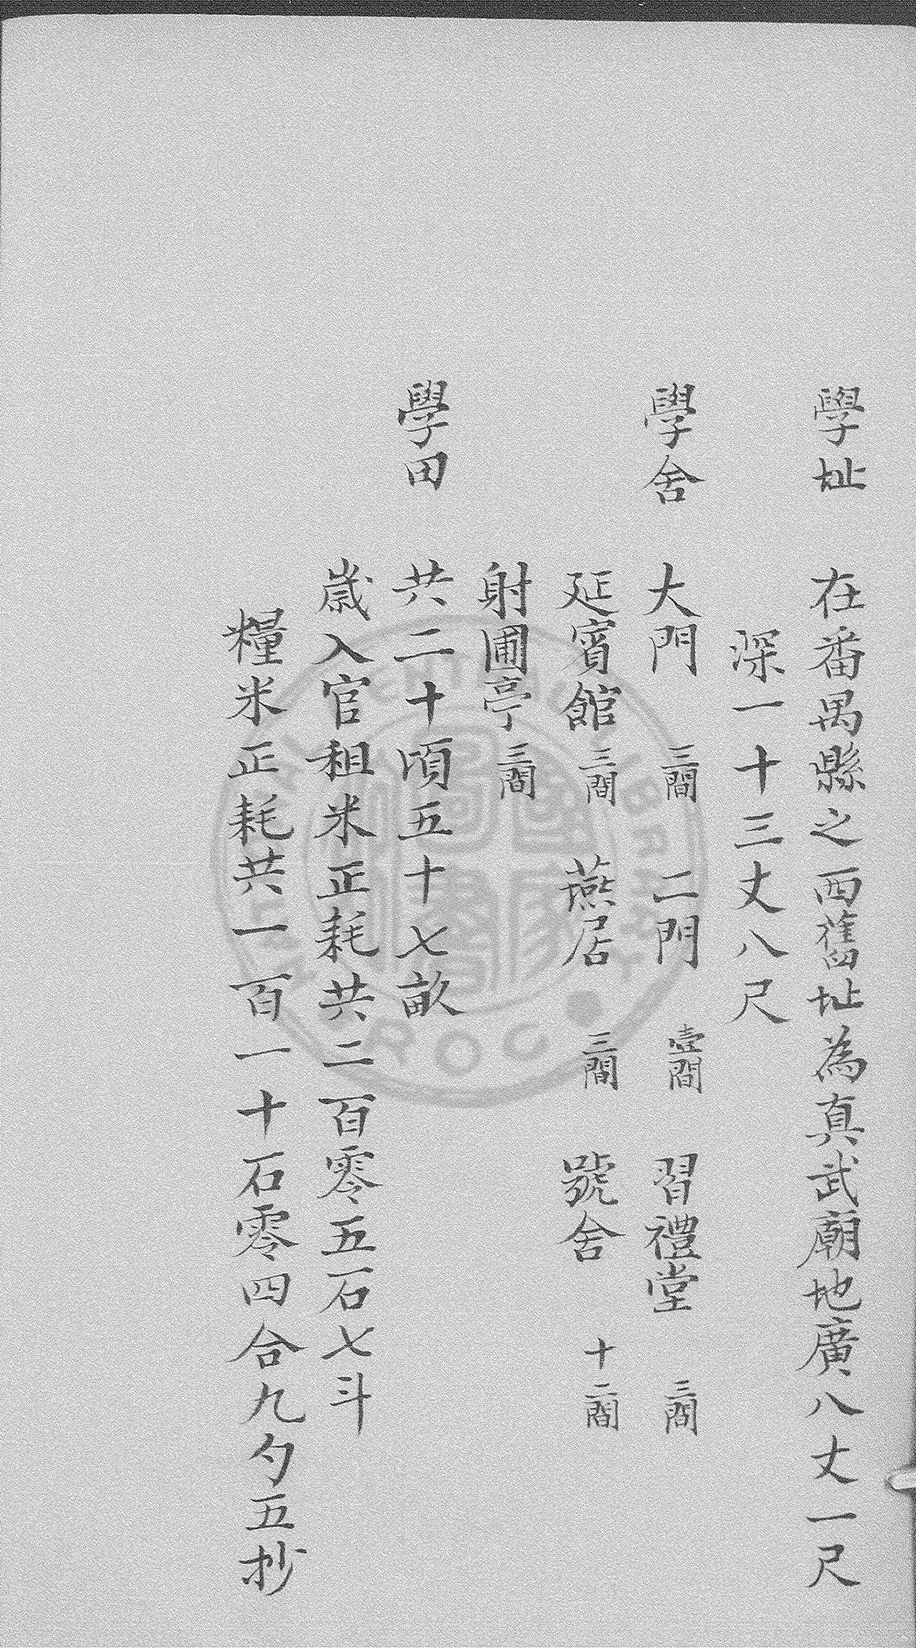 學址　在番禺縣之西舊址為真武廟地廣八丈一尺
深一十三丈八尺
學舍　大門三間　二門壹間　習禮堂三間
延賓館三間　燕居三間　號舍十二間
射圃亭三間
學田　共二十頃五十七畝
歲入官租米正耗共二百零五石七斗
糧米正耗共一百一十石零四合九勺五抄